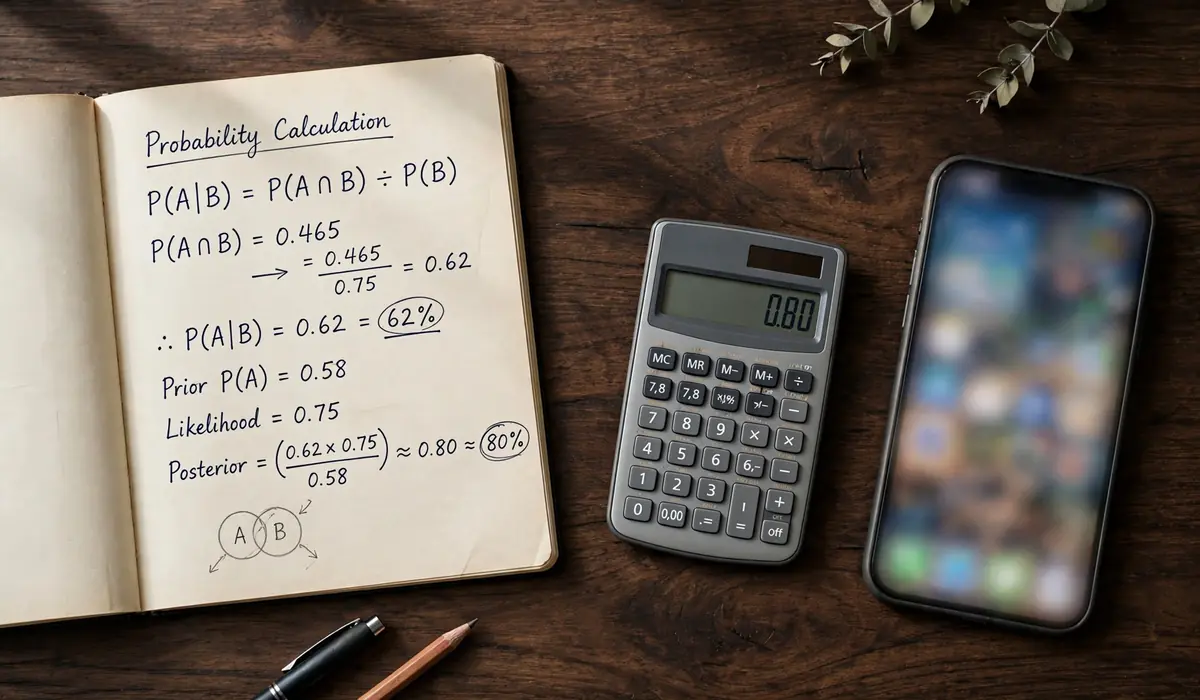 Probability Calculation
P(A|B) = P(A ∩ B) ÷ P(B)
P(A ∩ B) = 0.465
→ = 0.465 / 0.75 = 0.62
∴ P(A|B) = 0.62 = 62%
Prior P(A) = 0.58
Likelihood = 0.75
Posterior = (0.62 x 0.75 / 0.58) ≈ 0.80 ≈ 80%
A B
0.80
MC MR M– M+ ÷
7,8 7,8 –
7 8 9 × ×
4 5 6 6,– –
1 2 3 +
0 0,00 .= = off